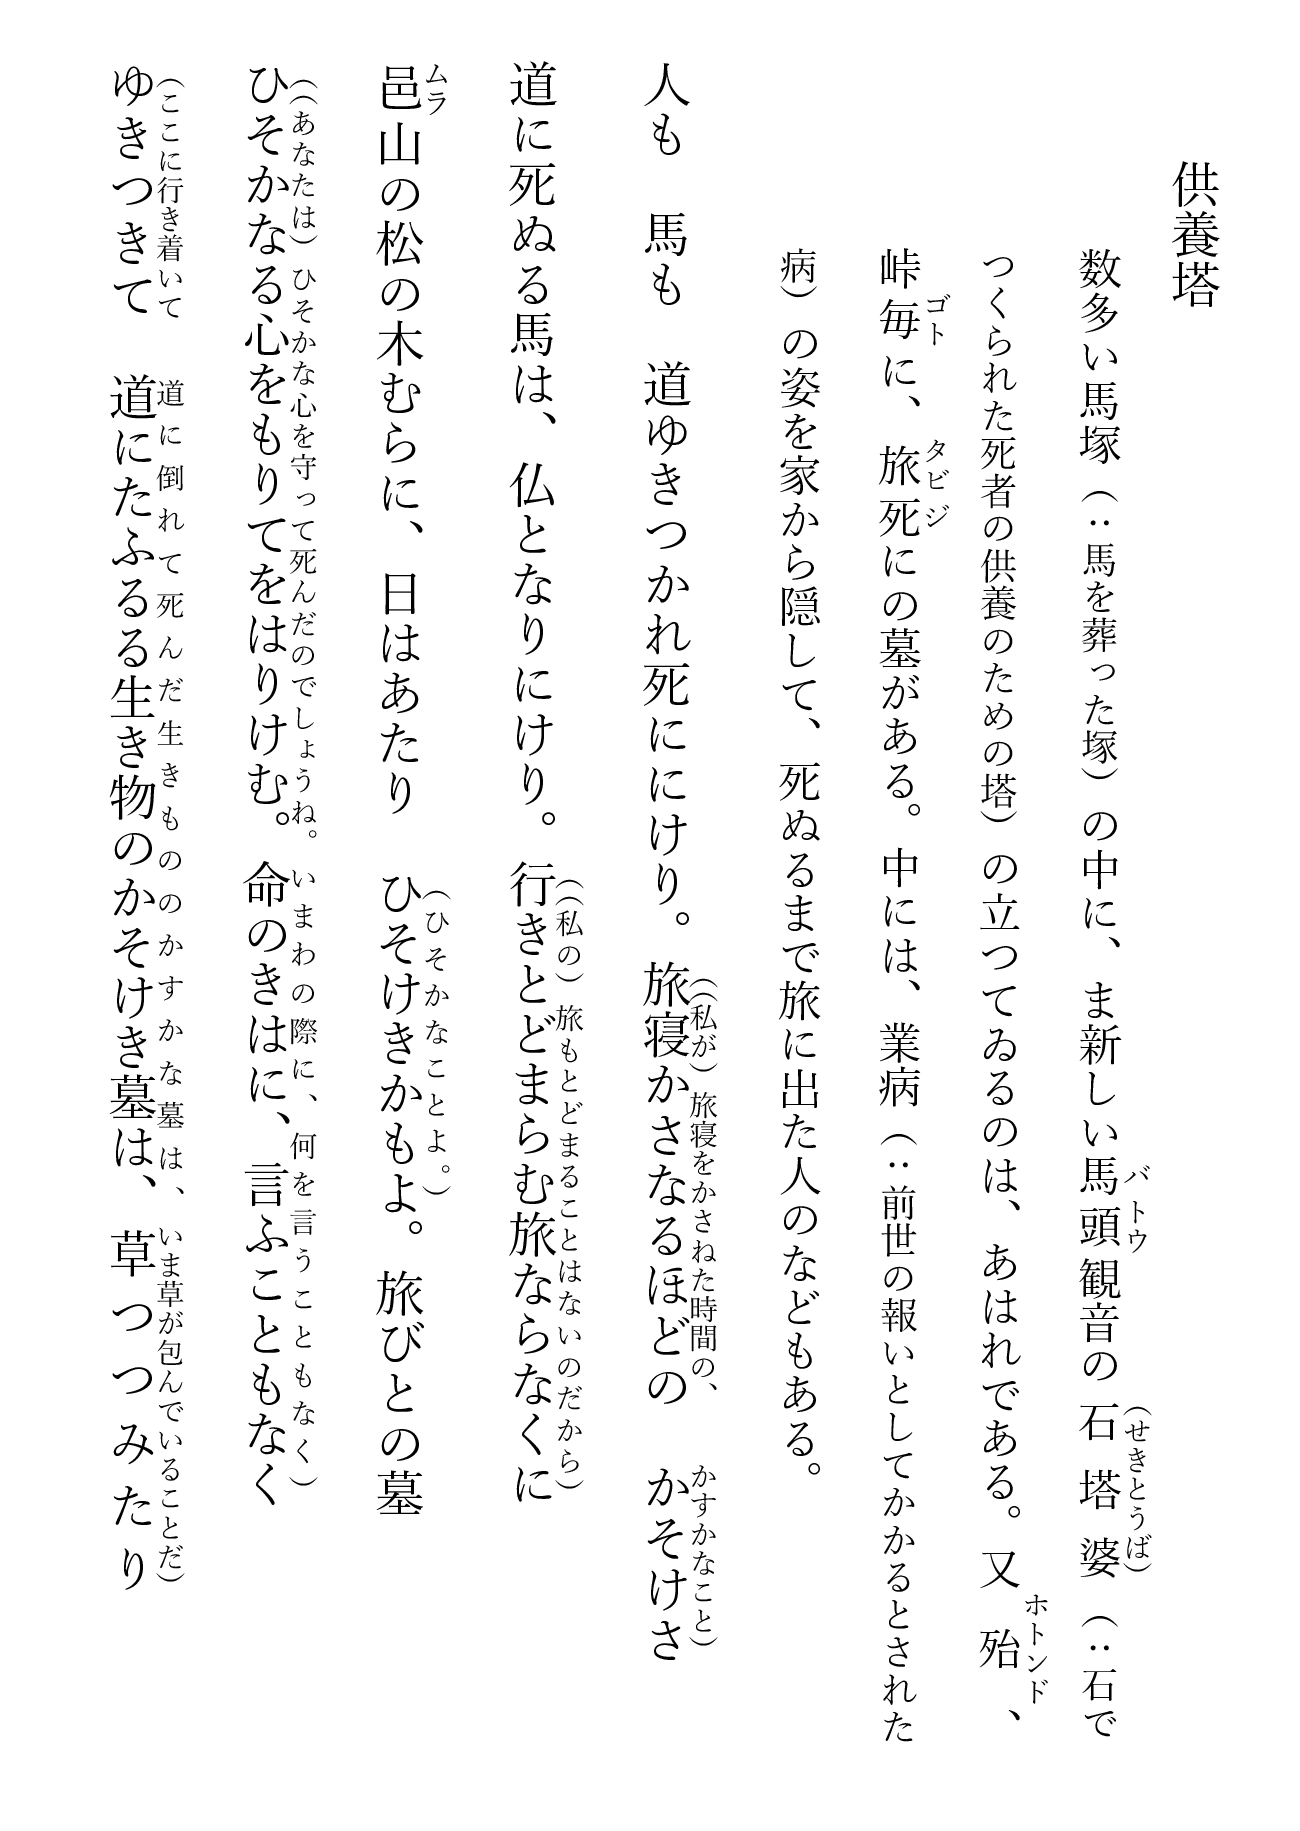 供養塔
数多い馬塚（：馬を葬った塚）の中に、ま新しい馬頭観音の石塔婆（：石で
バトウ
（せきとうば）
つくられた死者の供養のための塔）の立つてゐるのは、あはれである。又殆、
ホトンド
峠毎に、旅死にの墓がある。中には、業病（：前世の報いとしてかかるとされた
ゴト
タビジ
病）の姿を家から隠して、死ぬるまで旅に出た人のなどもある。
人も　馬も　道ゆきつかれ死ににけり。旅寝かさなるほどの　かそけさ
（（私が）旅寝をかさねた時間の、　かすかなこと）
道に死ぬる馬は、仏となりにけり。行きとどまらむ旅ならなくに
（（私の）旅もとどまることはないのだから）
邑山の松の木むらに、日はあたり　ひそけきかもよ。旅びとの墓
ムラ
（ひそかなことよ。）
ひそかなる心をもりてをはりけむ。命のきはに、言ふこともなく
（（あなたは）ひそかな心を守って死んだのでしょうね。いまわの際に、何を言うこともなく）
ゆきつきて　道にたふるる生き物のかそけき墓は、草つつみたり
（ここに行き着いて　道に倒れて死んだ生きもののかすかな墓は、いま草が包んでいることだ）